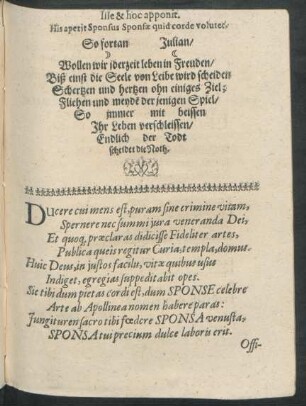 Iise & hoc apponit.
His aperit Sponsus Sponsæ quid corde volutet.
So fortan Julian/
Wollen wir jderzeit leben in Frewden/
Biß einst die Seele von Leibe wird scheiden
Schertzen und hertzen ohn einiges Ziel;
Fliehen und meyde der jenigen Spiel/
So immer mit beissen
Ihr Leben verschleissen/
Endlich der Todt
scheidet die Noth.
Ducere cui mens est, puram sine crimine vitam,
Spernere nec summi jura veneranda Dei,
Et quoq, præclaras didicisse Fideliter artes,
Publica queis regitur Curia, templa, domus.
Huic Deus, in justos facilis, vitæ quibus usus
Indiget, egregias suppeditabit opes.
Sic tibi dum pietas cordi est, dum SPONSE celebre
Arte ab Apollinea nomen habere paras:
Jungitur en sacro tibi fœdere SPONSA venusta,
SPONSA tui precium dulce laboris erit.
Offi-